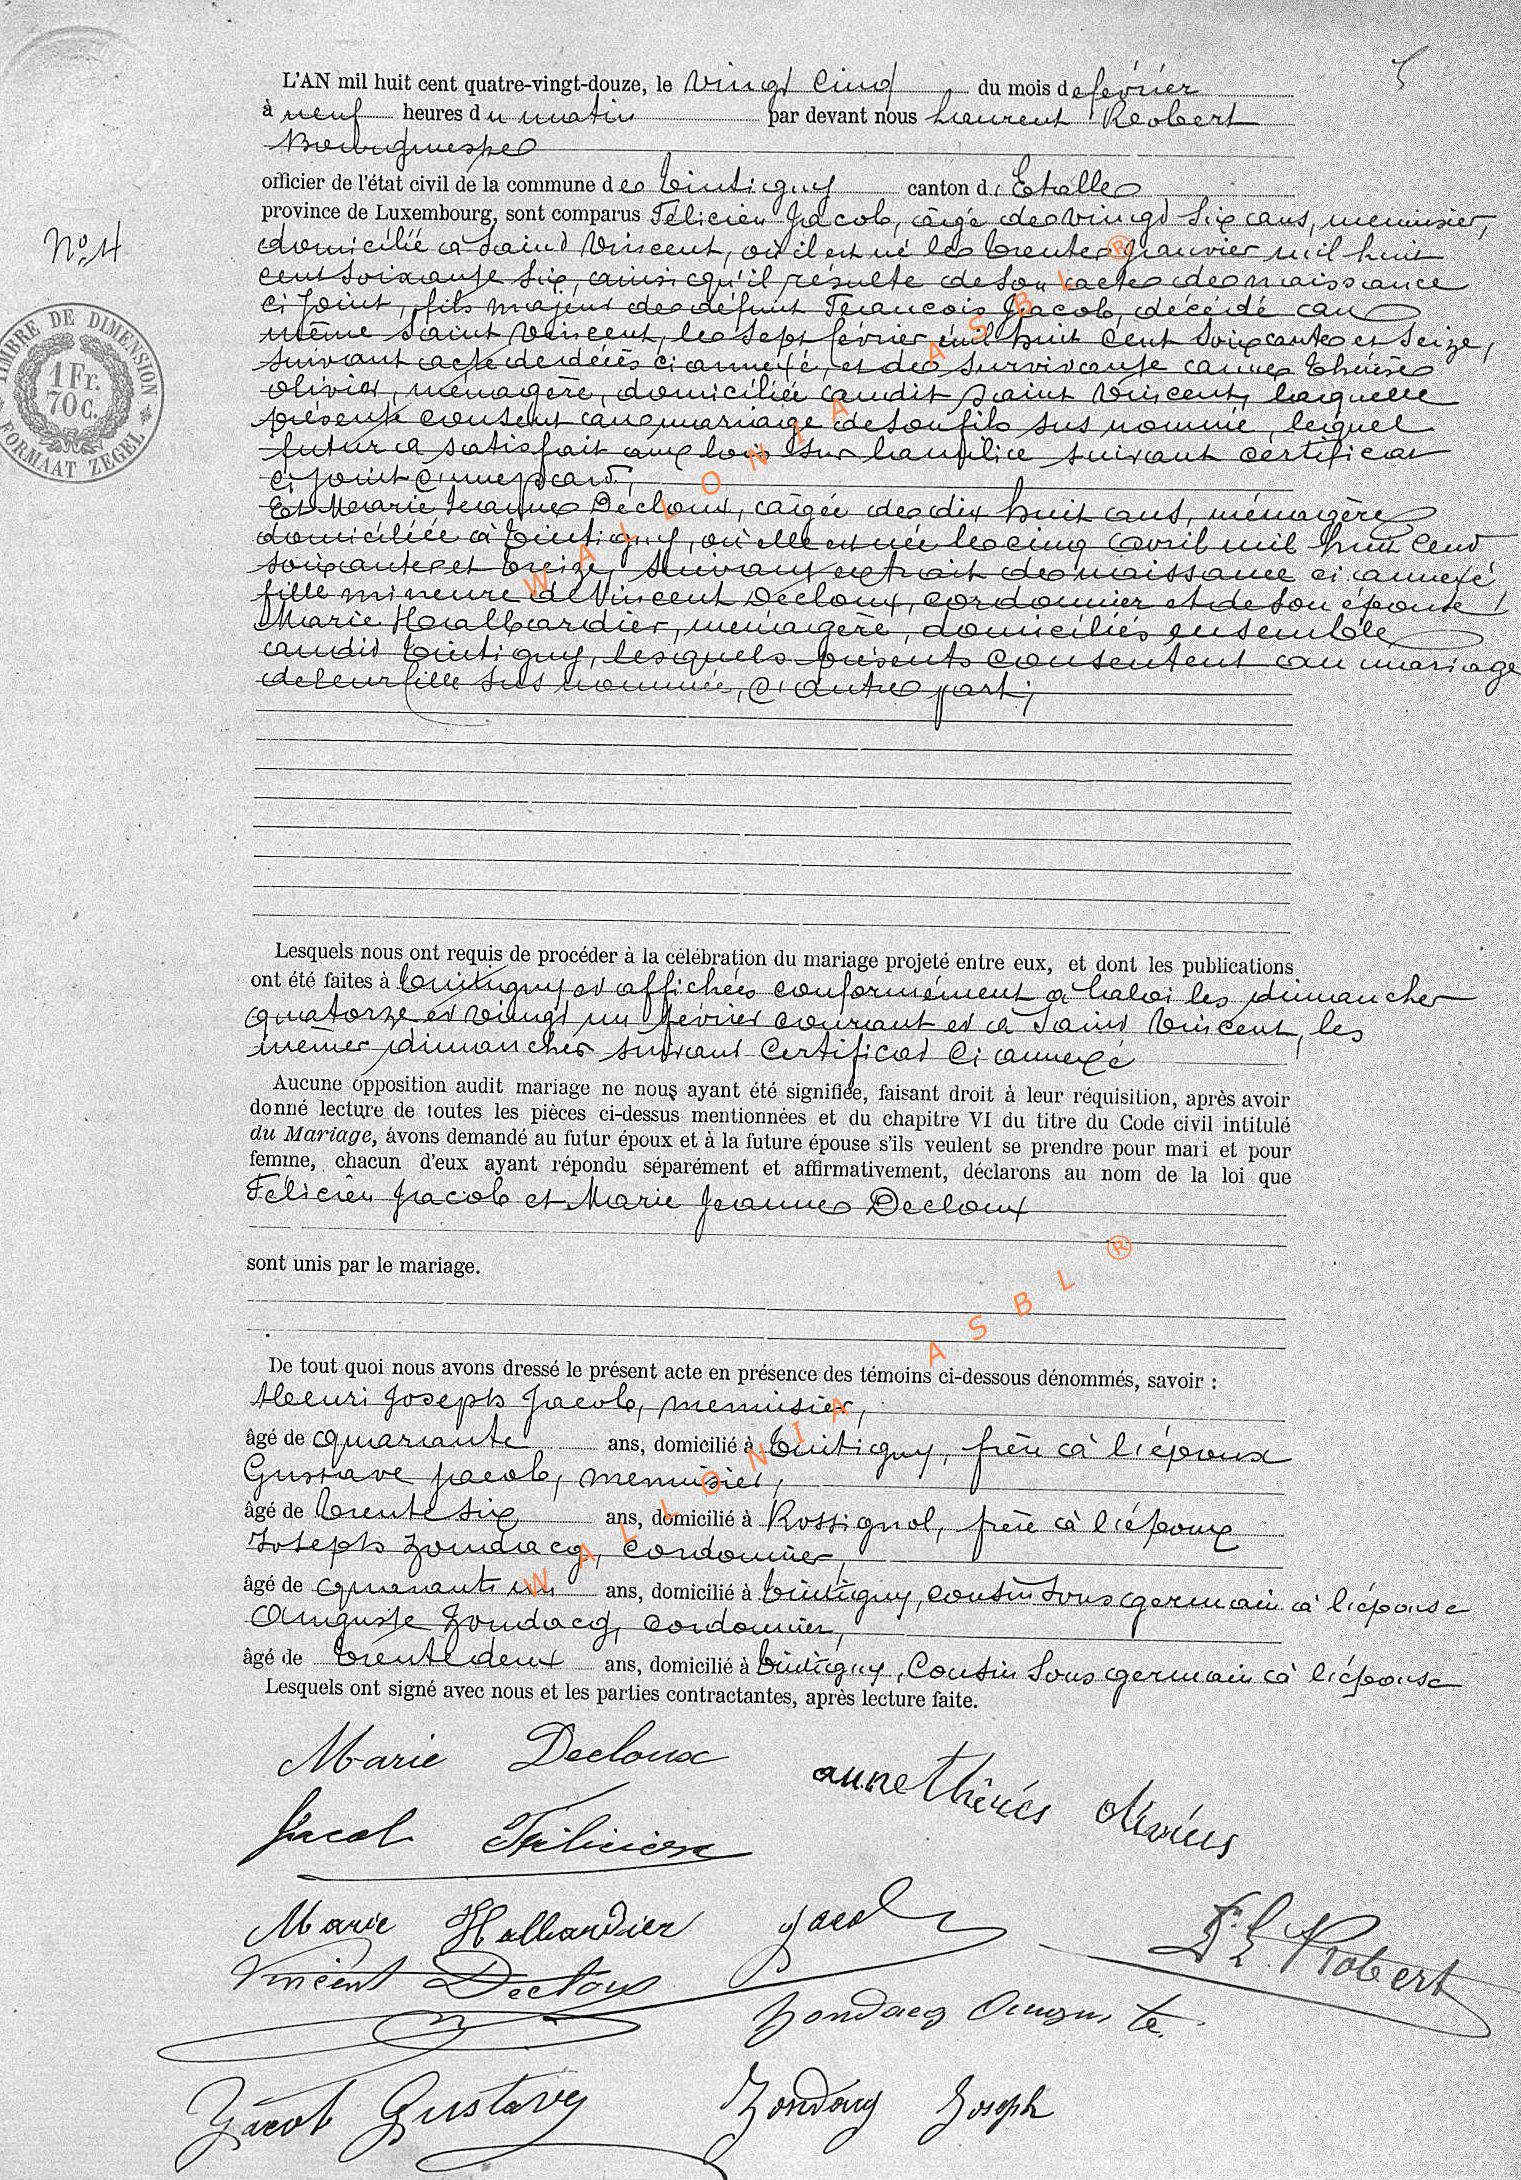 5
L'AN mil huit cent quatre-vingt-douze, le vingt cinq du mois de février
à neuf heures du matin par devant nous Laurent Robert
Bourgmestre
officier de l'état civil de la commune de Tintigny canton d'Etalle
province de Luxembourg, sont comparus Félicien Jacob, âgé de vingt six ans, menuisier,
N° 4
domicilié à Saint Vincent, où il est né le trente janvier mil huit
cent soixante six, ainsi qu'il résulte de son acte de naissance
ci joint, fils majeur de défunt François Jacob, décédé au
même Saint Vincent, le sept février mil huit cent soixante et seize,
suivant acte de décès ci annexé, et de survivante Anne Thérèse
Olivier, ménagère, domiciliée audit Saint Vincent, laquelle
présente consent au mariage de son fils sus nommé, lequel
futur a satisfait aux lois sur la milice suivant certificat
ci joint d'une part,
Et Marie Jeanne Decloux, âgée de dix huit ans, ménagère
domiciliée à Tintigny, où elle est née le cinq avril mil huit cent
soixante et treize, suivant extrait de naissance ci annexé
fille mineure de Vincent Decloux, cordonnier et de son épouse
Marie Hallbardier, ménagère, domiciliés ensemble
audit Tintigny, lesquels présents consentent au mariage
de leur fille sus nommée, d'autre part;
TIMBRE DE DIMENSION
1 Fr.
70 C.
FORMAAT ZEGEL
Lesquels nous ont requis de procéder à la célébration du mariage projeté entre eux, et dont les publications
ont été faites à Tintigny et affichées conformément à la loi les dimanches
quatorze et vingt un février courant et à Saint Vincent, les
mêmes dimanches suivant certificat ci annexé
Aucune opposition audit mariage ne nous ayant été signifiée, faisant droit à leur réquisition, après avoir
donné lecture de toutes les pièces ci-dessus mentionnées et du chapitre VI du titre du Code civil intitulé
du Mariage, avons demandé au futur époux et à la future épouse s'ils veulent se prendre pour mari et pour
femme, chacun d'eux ayant répondu séparément et affirmativement, déclarons au nom de la loi que
Félicien Jacob et Marie Jeanne Decloux
sont unis par le mariage.
De tout quoi nous avons dressé le présent acte en présence des témoins ci-dessous dénommés, savoir :
Henri Joseph Jacob, menuisier,
âgé de quarante ans, domicilié à Tintigny, frère à l'époux
Gustave Jacob, menuisier,
âgé de trente six ans, domicilié à Rossignol, frère à l'époux
Joseph Zondacq, cordonnier,
âgé de quarante un ans, domicilié à Tintigny, cousin sous germain à l'épouse
Auguste Zondacq, cordonnier,
âgé de trente deux ans, domicilié à Tintigny, cousin sous germain à l'épouse
Lesquels ont signé avec nous et les parties contractantes, après lecture faite.
Marie Decloux
anne thérés
Jacob Félicien
Marie Hallbardier Jacob
F. L. Robert
Vincent Decloux
Zondacq Auguste
Jacob Gustave
Zondacq Joseph
WALLONIA ASBL ®
WALLONIA ASBL ®